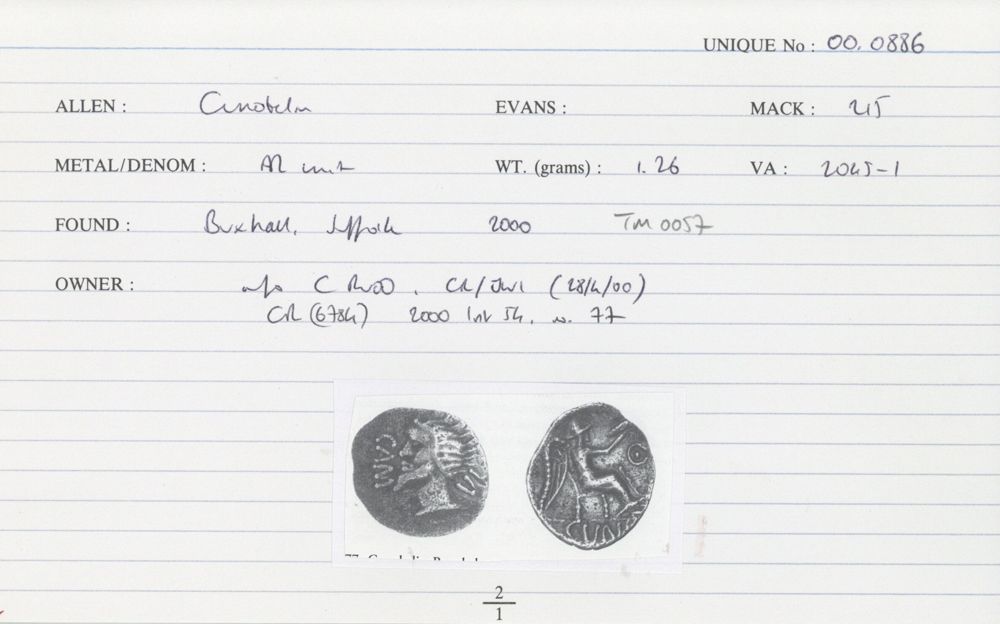 UNIQUE No : 00.0886
ALLEN : Cunobelin EVANS : MACK : 215
METAL/DENOM : AR unit WT. (grams) : 1.26 VA : 2045-1
FOUND : Buxhall, Suffolk 2000 TM 0057
OWNER : C Rudd. CR/ (28/4/00)
CR (6784) 2000 list 54, no. 77
CAMV
CVNO
2
1